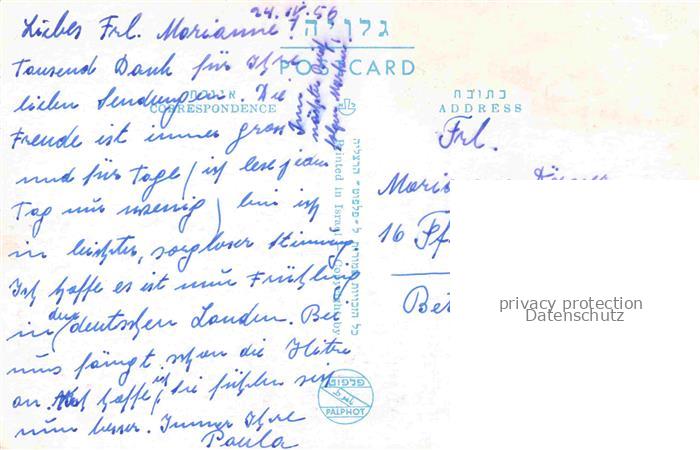 24.IV.56
Liebes Frl. Marianne!
Tausend Dank für Ihre
lieben Sendungen. Die
Freude ist immer gross
und für Tage (ich lese jeden
Tag nur wenig) bin ich
in leichter, sorgloser Stimmung
Ich hoffe es ist nun Frühling
in den deutschen Landen. Bei
uns fängt schon die Hitze
an. hoffe ich Sie fühlen sich
nun besser. Immer Ihre
Paula
Im
nächsten Brief
folgen Marken!
גלויה
POSTCARD
אגרת
CORRESPONDENCE
כתובת
ADDRESS
Printed in Israel Copyright by
כל הזכויות שמורות ל"פלפוט" הרצליה
פלפוט
PALPHOT
Frl.
16
privacy protection
Datenschutz